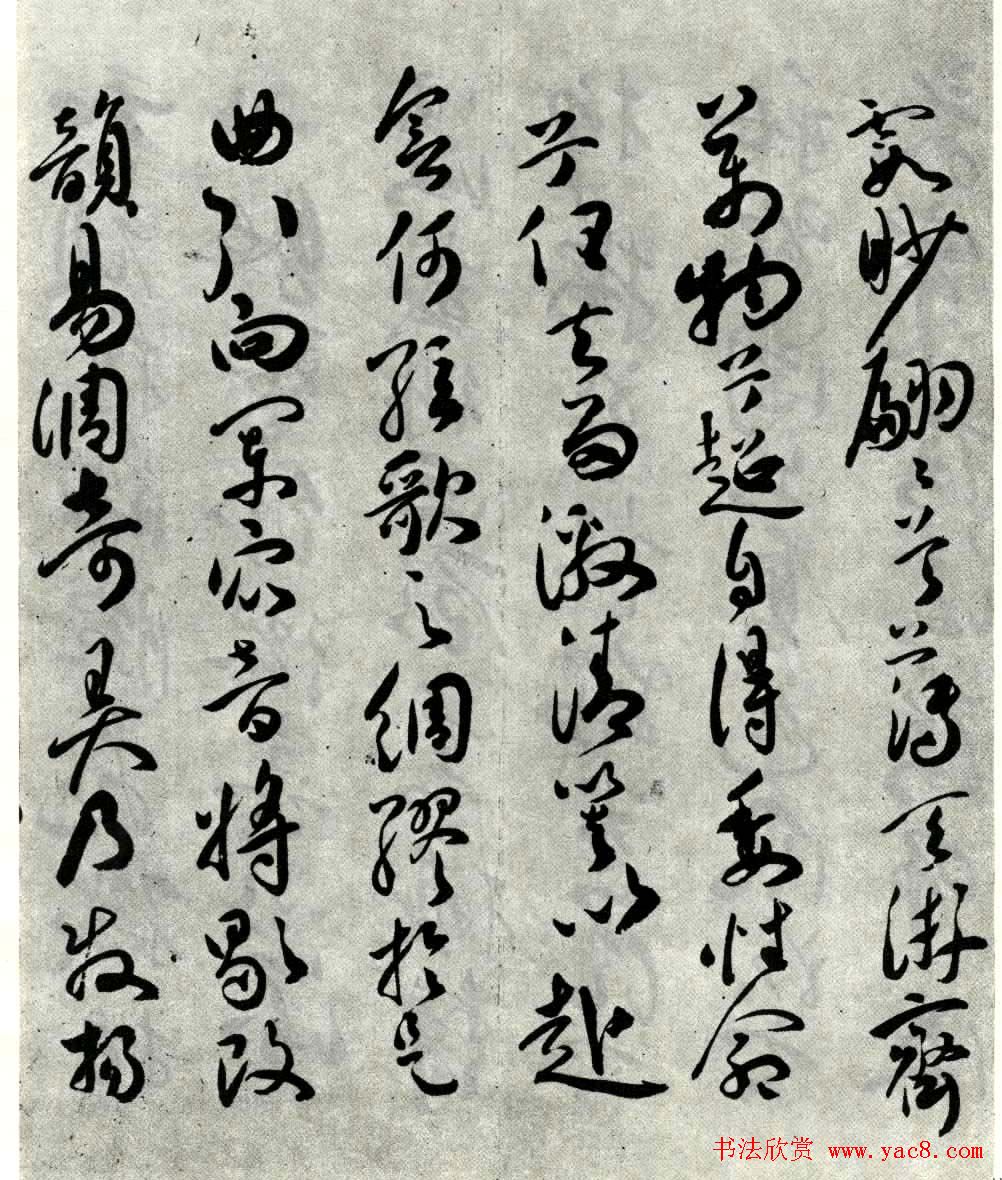 霞眇翩々兮薄天游齊
萬物兮超自得委性命
兮任去留激清響以赴
會何絃歌之綢繆於是
曲引向闌衆音將歇改
韻易調奇弄乃發揚
书法欣赏 www.yac8.com